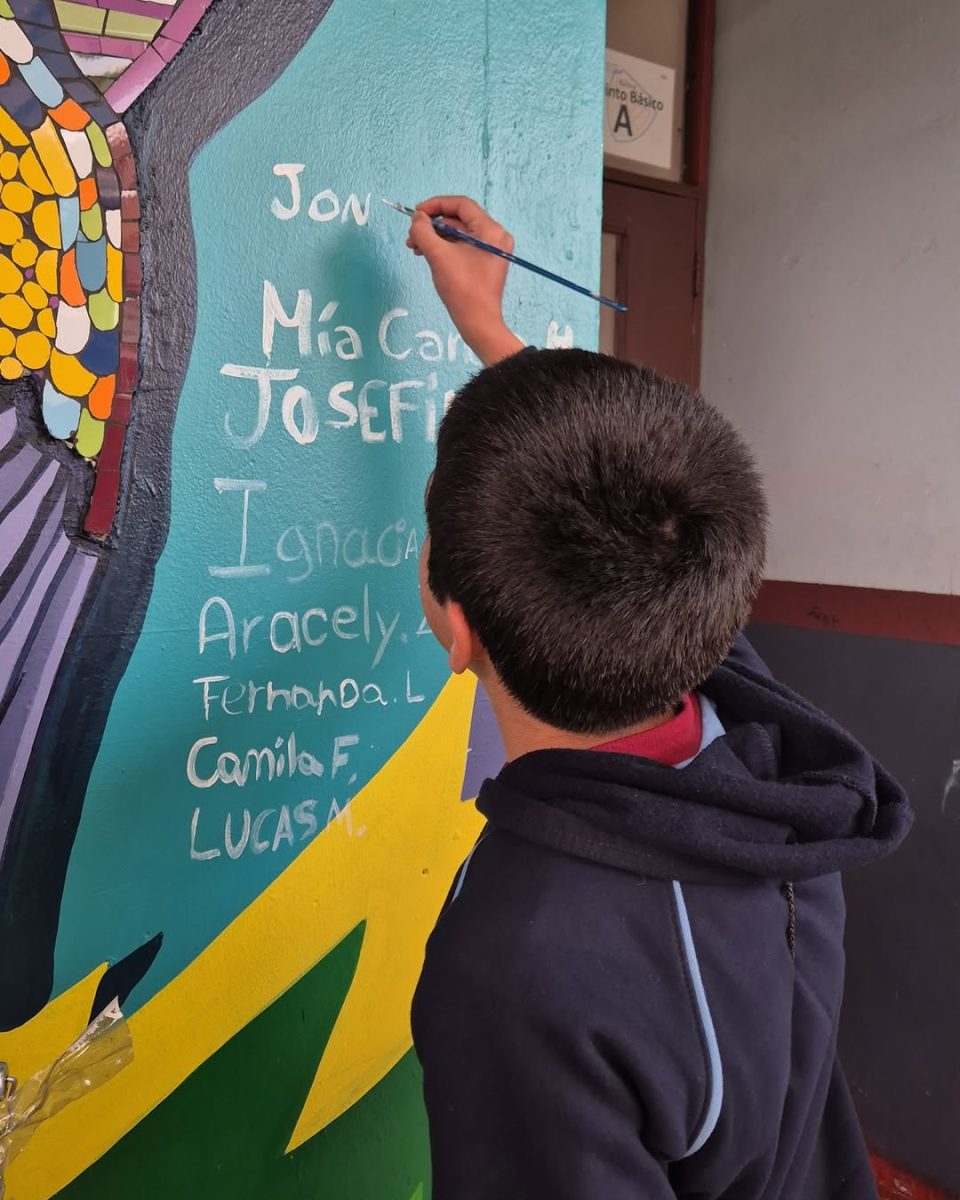 into Básico
A
JON
Mía
JOSEFI
Ignacia
Aracely.
Fernanda. L
Camila F.
LUCAS M.